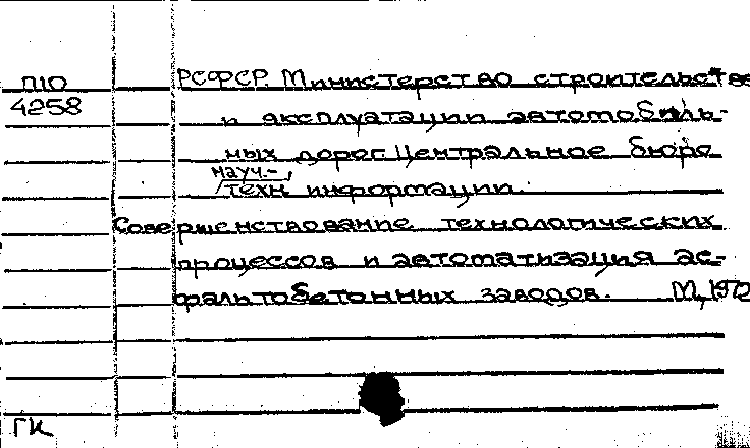 П10
4258
РСФСР. Министерство строительства
и эксплуатации автомобиль-
ных дорог. Центральное бюро
науч.-
техн. информации.
Совершенствование технологических
процессов и автоматизация ас-
фальтобетонных заводов. М., 1972
ГК